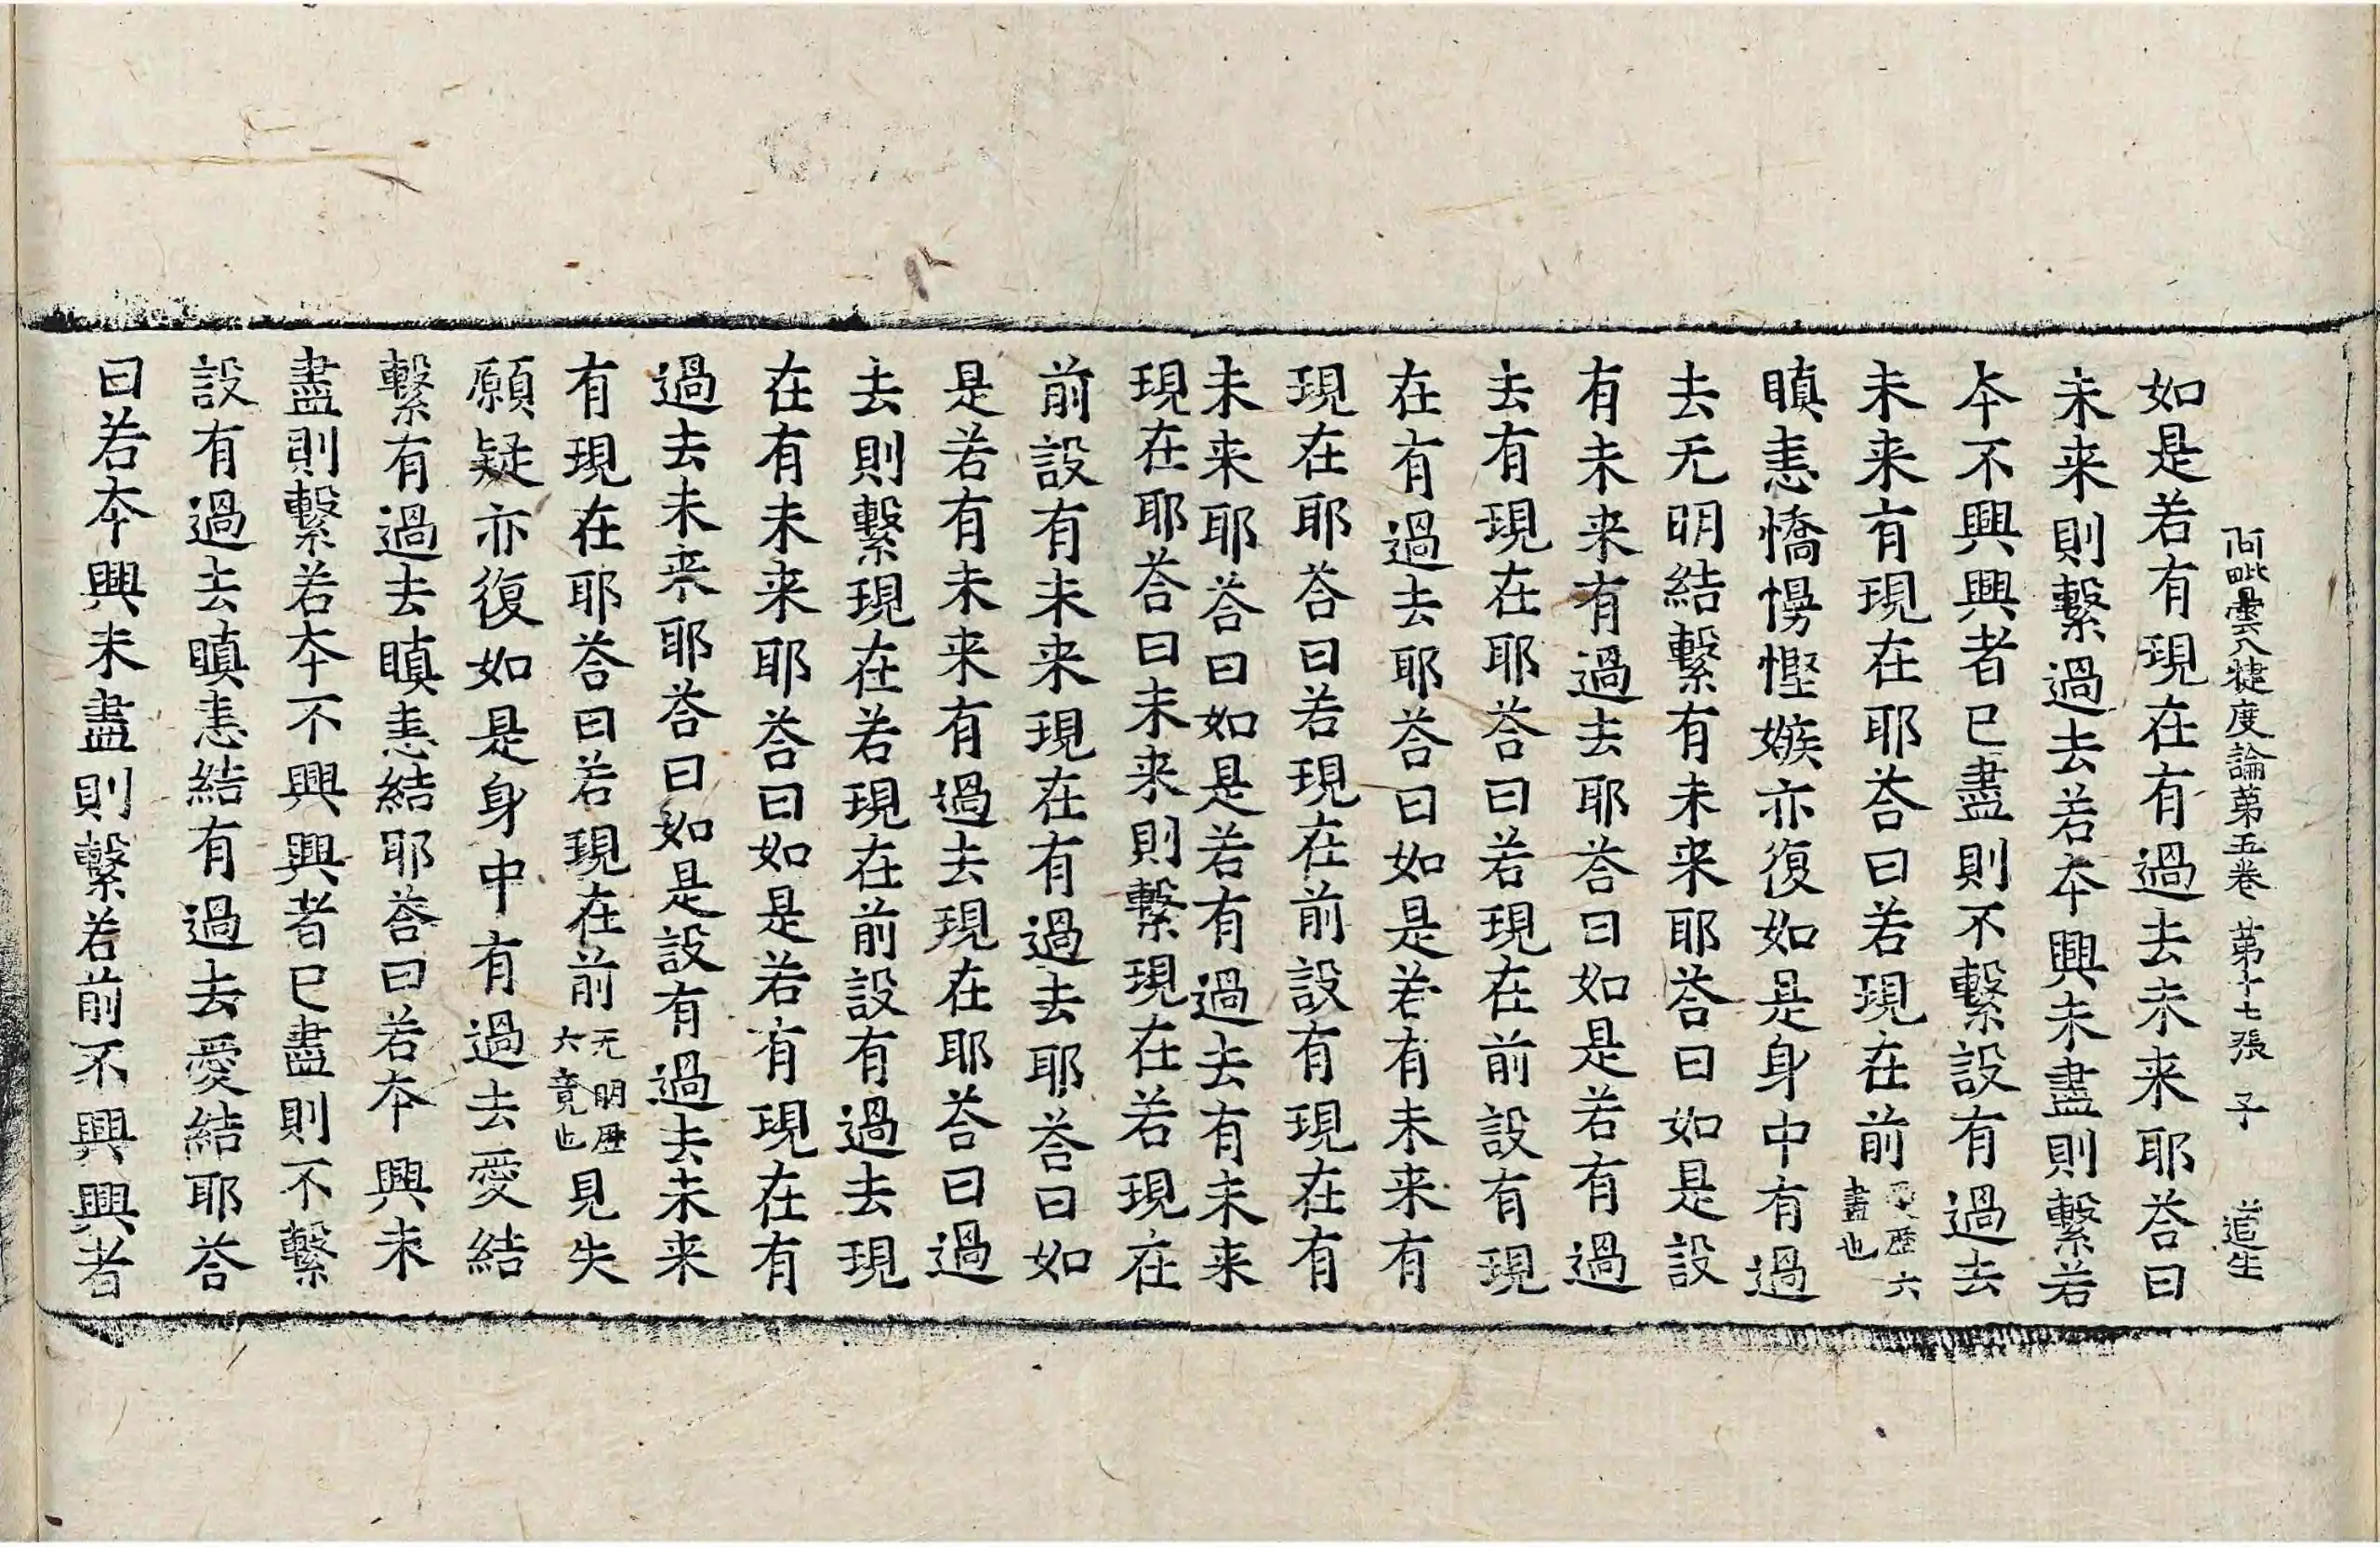 阿毗曇八犍度論苐五卷 苐十七張 子 道生
如是若有現在有過去未来耶荅曰
未来則繫過去若夲興未盡則繫若
夲不興興者已盡則不繫設有過去
未来有現在耶荅曰若現在前愛歴六盡也
瞋恚憍慢慳嫉亦復如是身中有過
去无明結繫有未来耶荅曰如是設
有未来有過去耶荅曰如是若有過
去有現在耶荅曰若現在前設有現
在有過去耶荅曰如是若有未来有
現在耶荅曰若現在前設有現在有
未来耶荅曰如是若有過去有未来
現在耶荅曰未来則繫現在若現在
前設有未来現在有過去耶荅曰如
是若有未来有過去現在耶荅曰過
去則繫現在若現在前設有過去現
在有未来耶荅曰如是若有現在有
過去未来耶荅曰如是設有過去未来
有現在耶荅曰若現在前无明歴六竟也見失
願疑亦復如是身中有過去愛結
繫有過去瞋恚結耶荅曰若夲興未
盡則繫若夲不興興者已盡則不繫
設有過去瞋恚結有過去愛結耶荅
曰若夲興未盡則繫若前不興興者